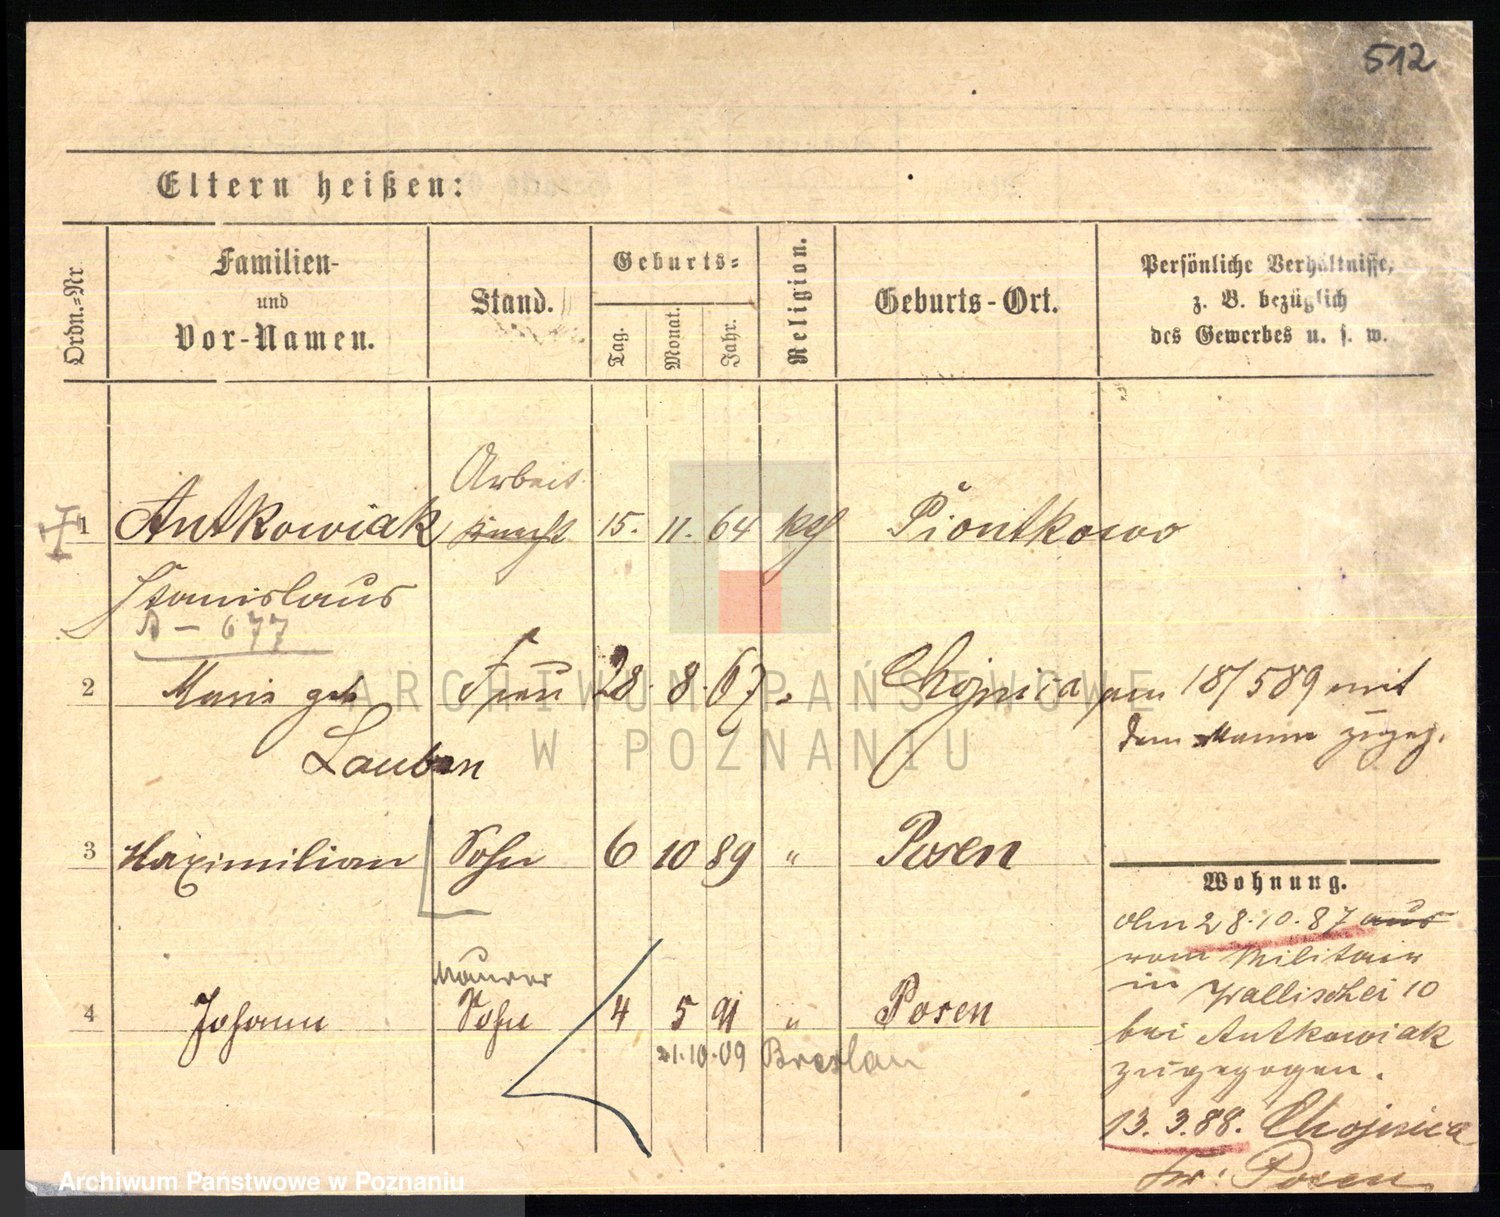 512
Eltern heißen:
Ordn.-Nr
Familien-
und
Vor-Namen.
Stand.
Geburts-
Tag.
Monat.
Jahr.
Religion.
Geburts-Ort.
Persönliche Verhältnisse,
z. B. bezüglich
des Gewerbes u. s. w.
Arbeit
1 Antkowiak Knecht 15. 11. 64 kth Piontkowo
Stanislaus
A - 677
2 Marie geb Frau 28. 8. 67 " Chojnica am 18/5 89 mit
Lauben dem Manne zugez.
3 Maximilian Sohn 6 10 89 " Posen
Wohnung.
Am 28.10.87 aus
vom Militair
in Wallischei 10
bei Antkowiak
zugezogen.
13. 3. 88. Chojnica
Kr: Posen
Maurer
4 Johann Sohn 4 5 91 " Posen
21.10.09 Breslau
ARCHIWUM PAŃSTWOWE
W POZNANIU
Archiwum Państwowe w Poznaniu